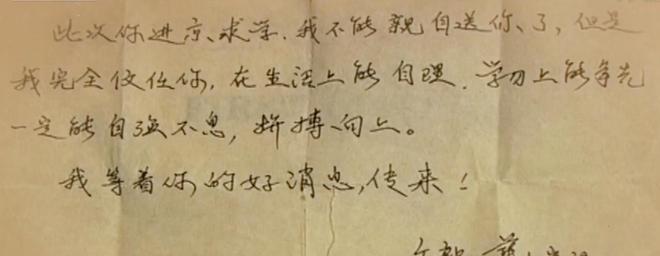 此次你进京求学，我不能亲自送你了，但是
我完全信任你，在生活上能自理，学习上能争先
一定能自强不息，拼搏向上。
我等着你的好消息，传来！